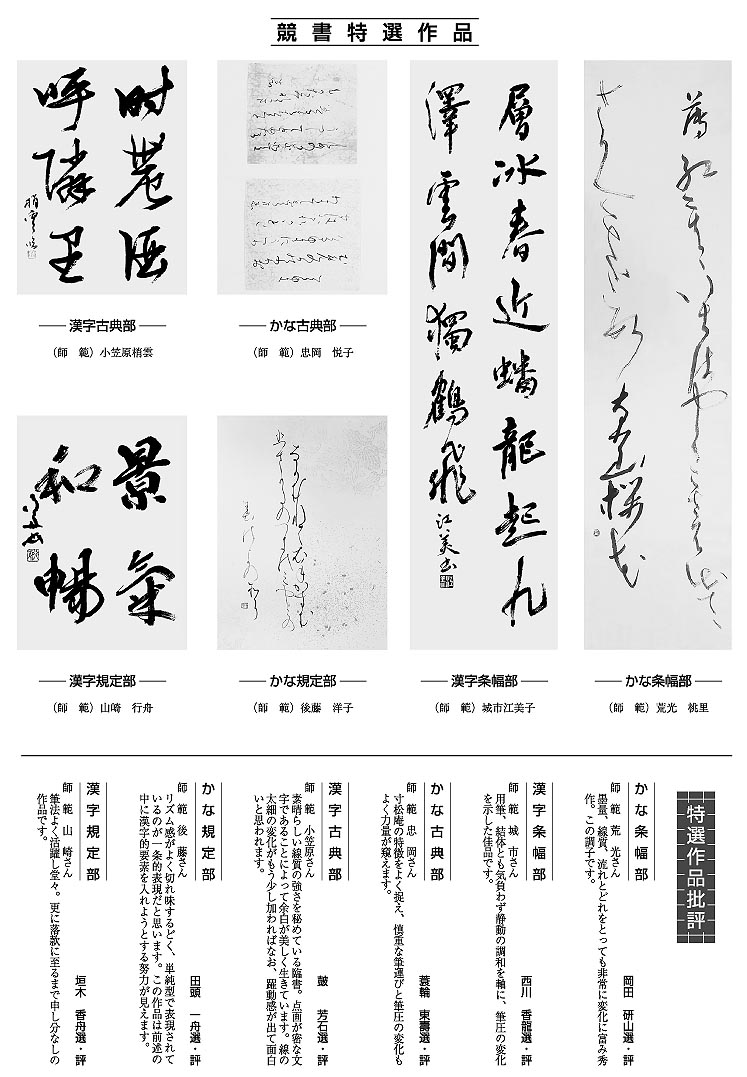 競書特選作品
層冰春近蟠龍起九
澤雲間獨鶴飛
江美書
景氣
和暢
呼隣里
漢字古典部
(師　範)小笠原梢雲
かな古典部
(師　範)忠岡　悦子
漢字規定部
(師　範)山崎　行舟
かな規定部
(師　範)後藤　洋子
漢字条幅部
(師　範)城市江美子
かな条幅部
(師　範)荒光　桃里
特選作品批評
かな条幅部
岡田　研山選・評
師　範　荒　光さん
墨量、線質、流れとどれをとっても非常に変化に富み秀
作。この調子です。
漢字条幅部
西川　香龍選・評
師　範　城　市さん
用筆、結体とも気負わず静動の調和を軸に、筆圧の変化
を示した佳品です。
かな古典部
蓑輪　東壽選・評
師　範　忠　岡さん
寸松庵の特徴をよく捉え、慎重な筆運びと筆圧の変化も
よく力量が窺えます。
漢字古典部
皷　芳石選・評
師　範　小笠原さん
素晴らしい線質の強さを秘めている臨書。点画が密な文
字であることによって余白が美しく生きています。線の
太細の変化がもう少し加わればなお、躍動感が出て面白
いと思われます。
かな規定部
田頭　一舟選・評
師　範　後　藤さん
リズム感がよく切れ味するどく、単純型で表現されて
いるのが一条的表現だと思います。この作品は前述の
中に漢字的要素を入れようとする努力が見えます。
漢字規定部
垣木　香舟選・評
師　範　山　崎さん
筆法よく活躍し堂々。更に落款に至るまで申し分なしの
作品です。